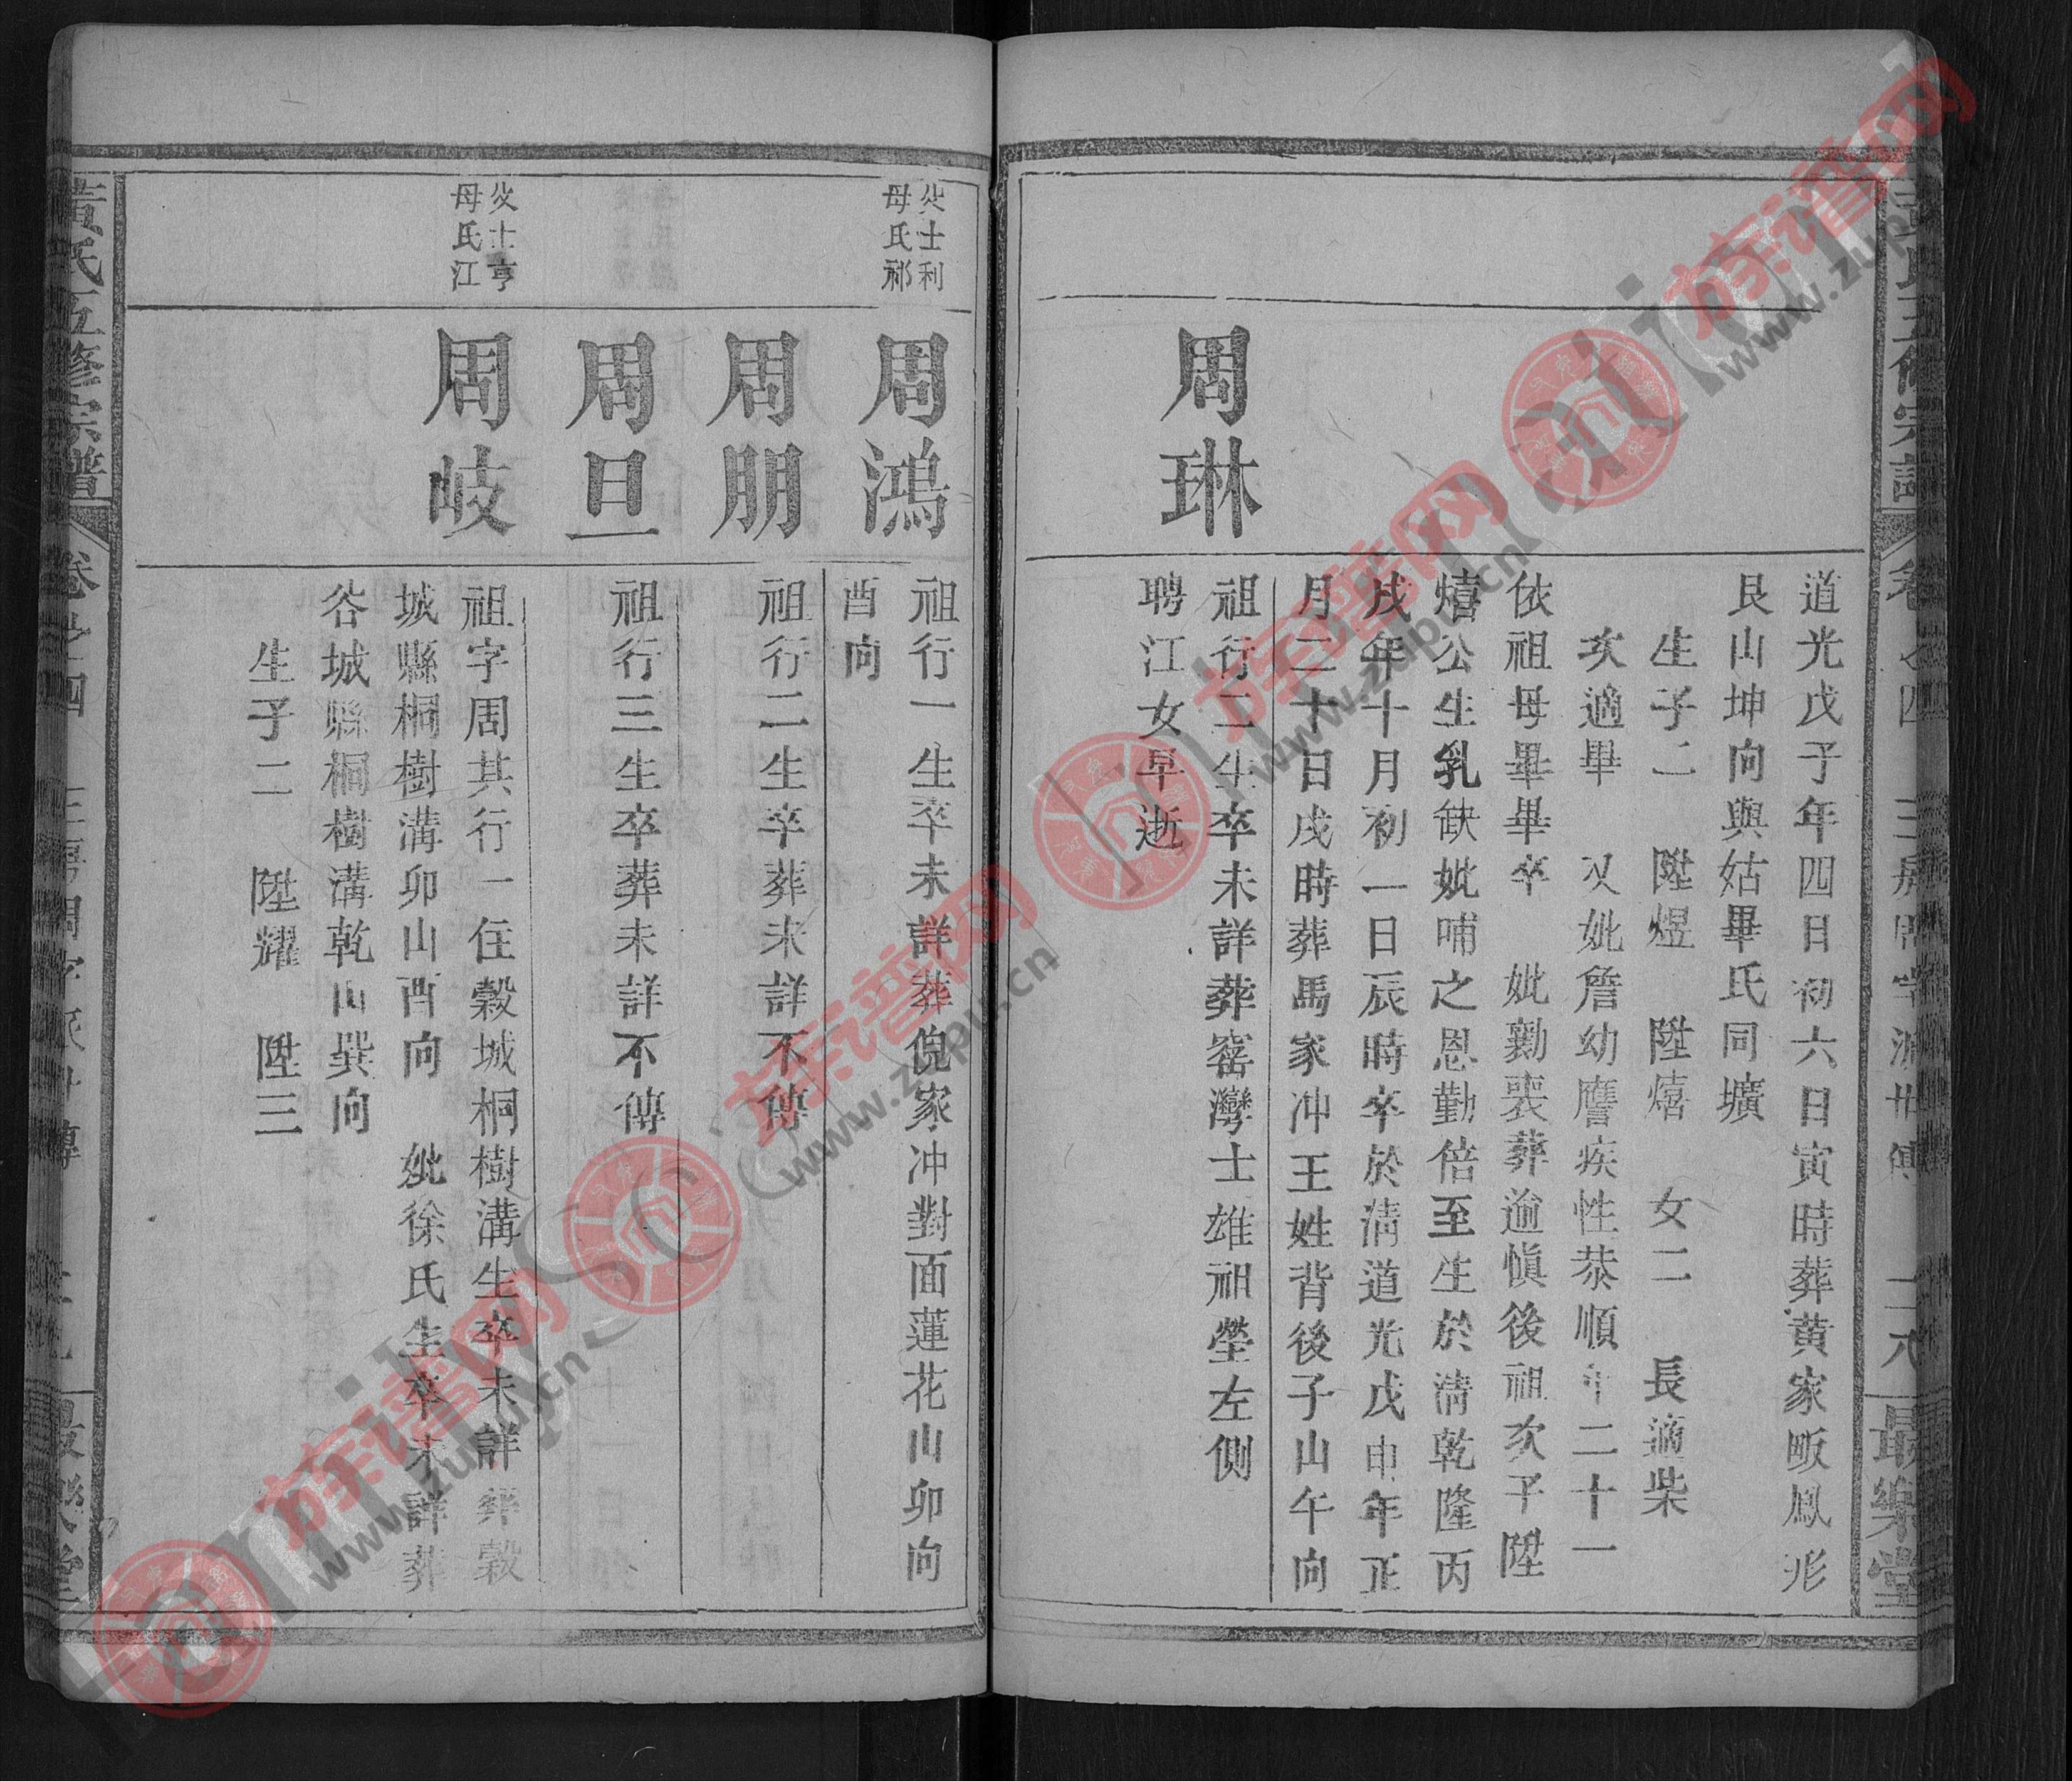 黃氏五修宗譜 卷之四 三房周字派世傳 二八 最樂堂
道光戊子年四日初六日寅時葬黃家畈鳳形
艮山坤向與姑畢氏同壙
生子二 陞煜 陞熺 女二 長適柴
次適畢 又妣詹幼膺疾性恭順年二十一
依祖母畢畢卒 妣勷喪葬逾慎後祖次子陞
熺公生乳缺妣哺之恩勤倍至生於清乾隆丙
戌年十月初一日辰時卒於清道光戊申年正
月二十日戌時葬馬家冲王姓背後子山午向
周琳
祖行二生卒未詳葬窰灣士雄祖塋左側
聘江女早逝
父士利
母氏祁
周鴻
祖行一生卒未詳葬倪家冲對面蓮花山卯向
酉向
周朋
祖行二生卒葬未詳不傳
周旦
祖行三生卒葬未詳不傳
父士亨
母氏江
周岐
祖字周其行一住榖城桐樹溝生卒未詳葬榖
城縣桐樹溝卯山酉向 妣徐氏生卒未詳葬
谷城縣桐樹溝乾山巽向
生子二 陞耀 陞三
黃氏五修宗譜 卷之四 三房周字派世傳 最樂堂